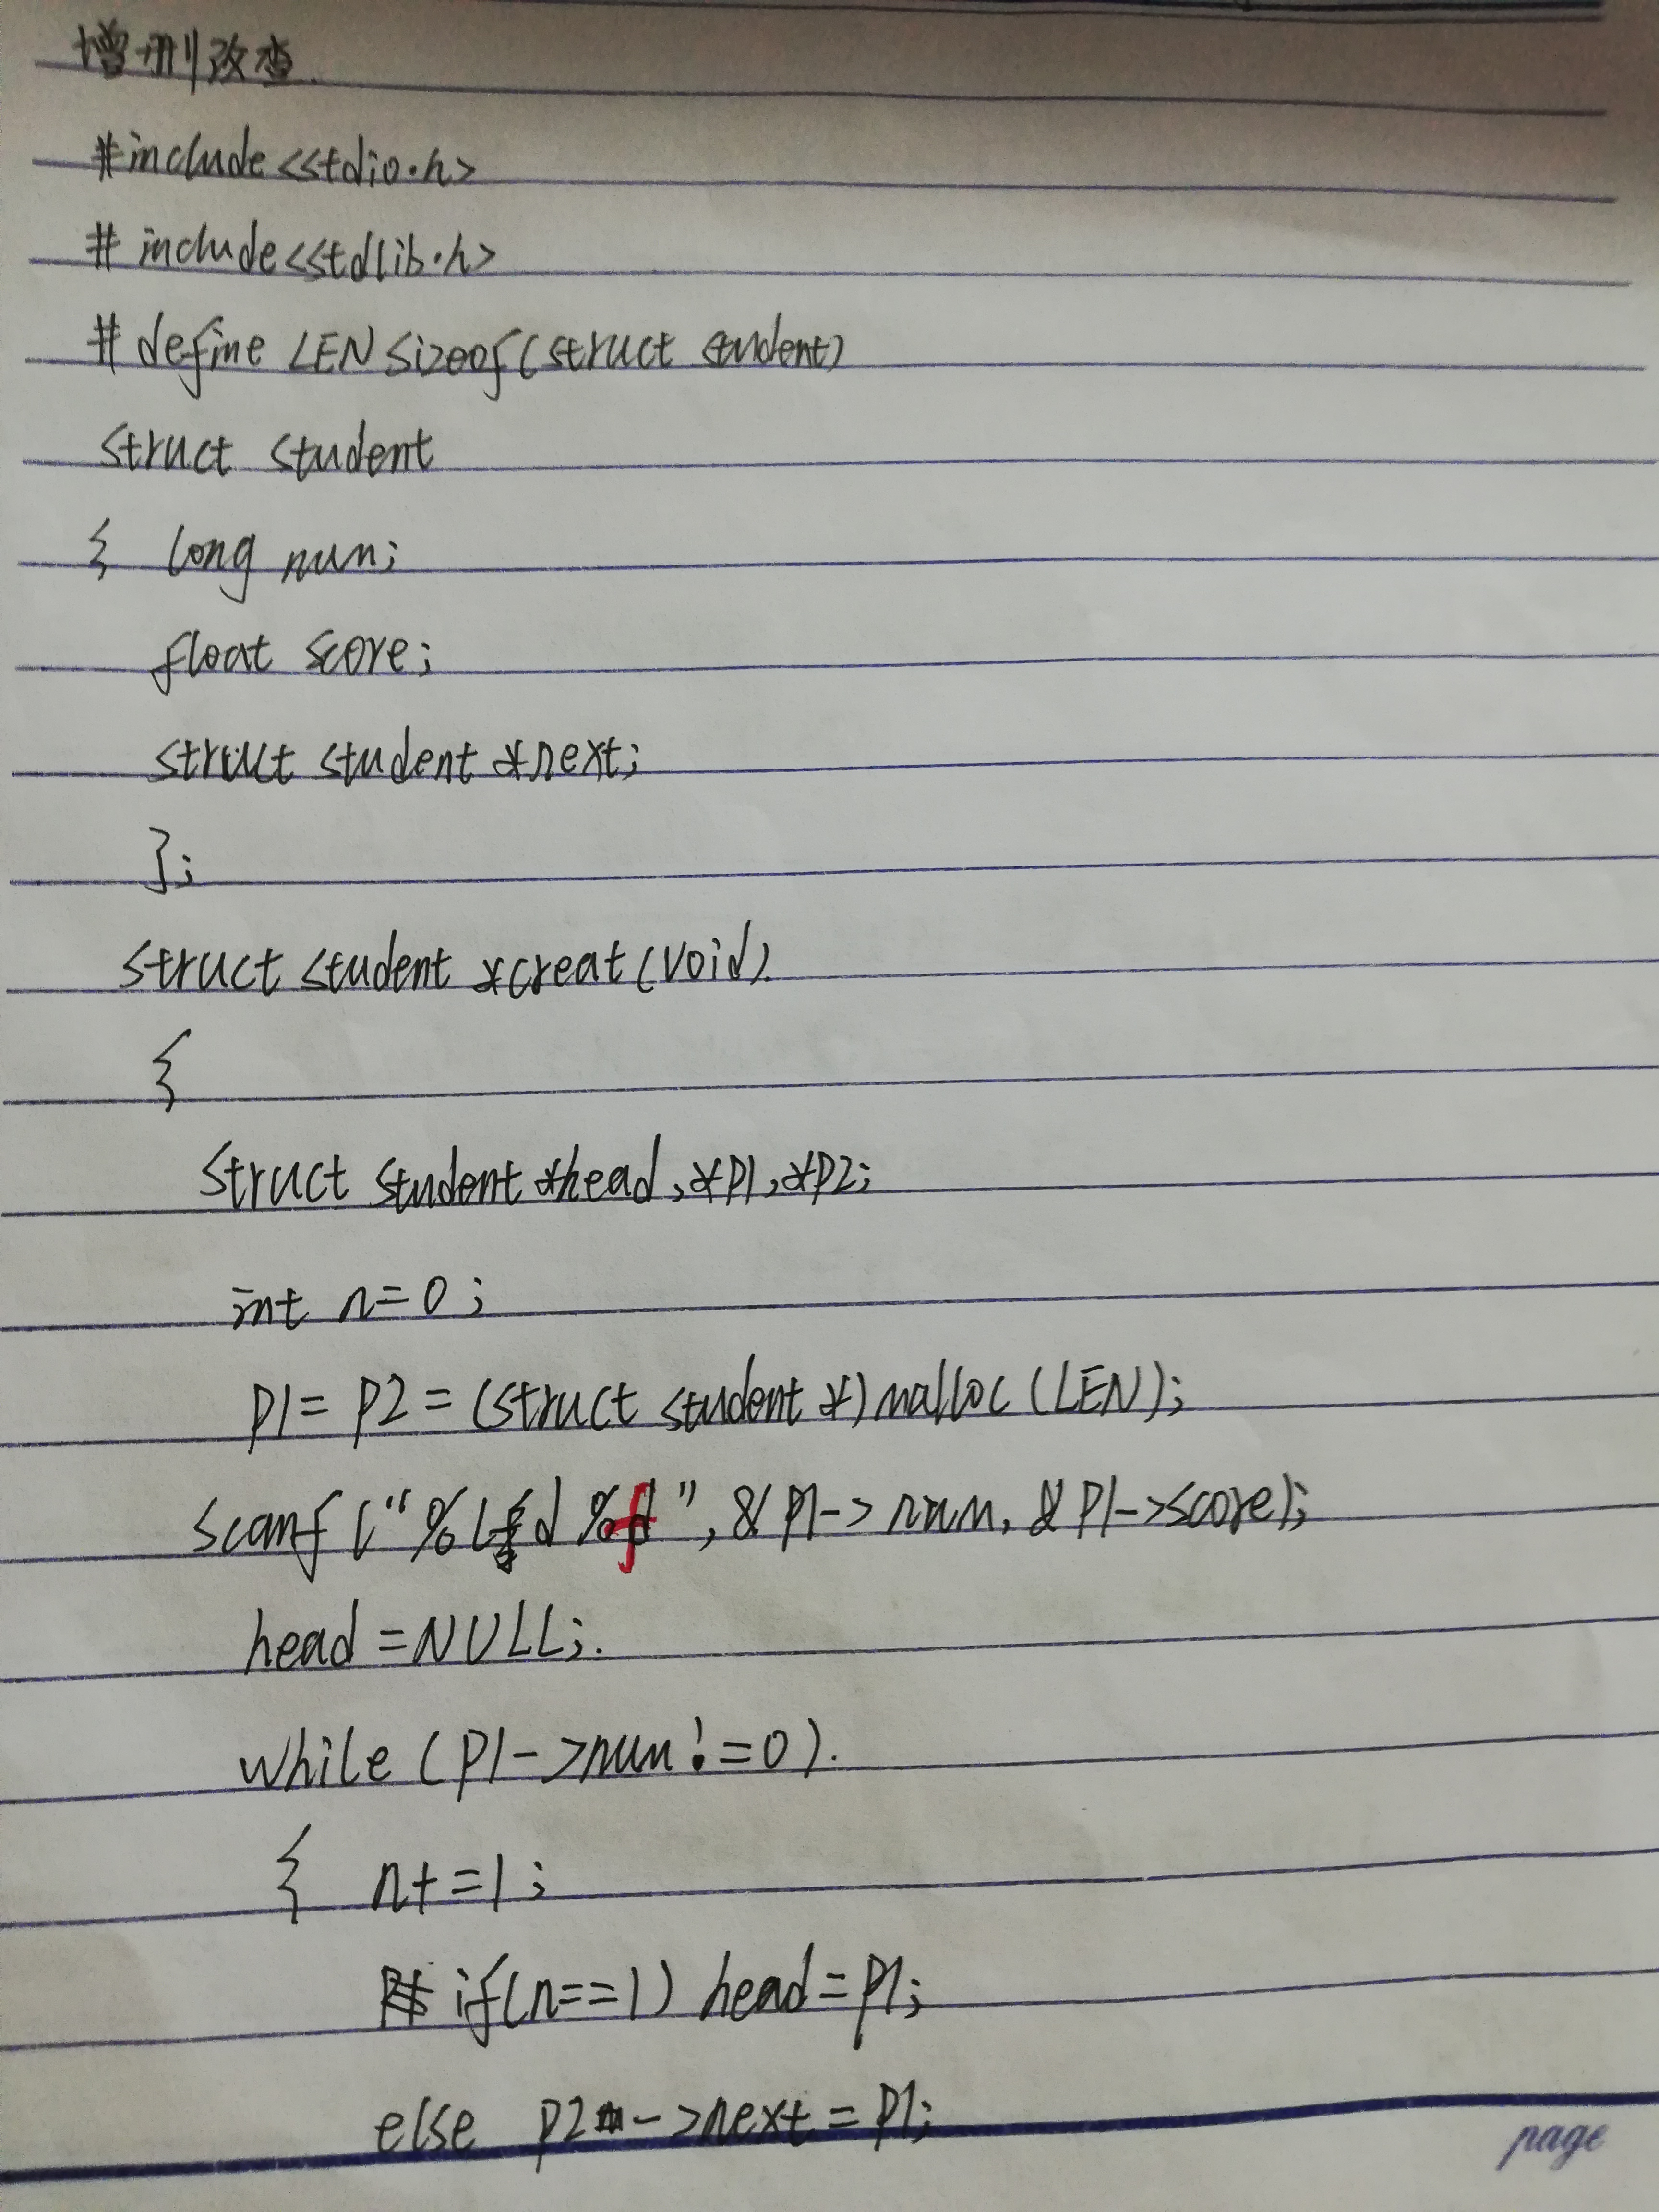 增删改查
#include<stdio.h>
# include<stdlib.h>
# define LEN sizeof(struct student)
struct student
{ long num;
float score;
struct student *next;
};
struct student *creat(void)
{
struct student *head,*p1,*p2;
int n=0;
p1=p2=(struct student *)malloc(LEN);
scanf("%ld %f",&p1->num,&p1->score);
head=NULL;
while(p1->num!=0)
{ n+=1;
if(n==1) head=p1;
else p2->next=p1;
page